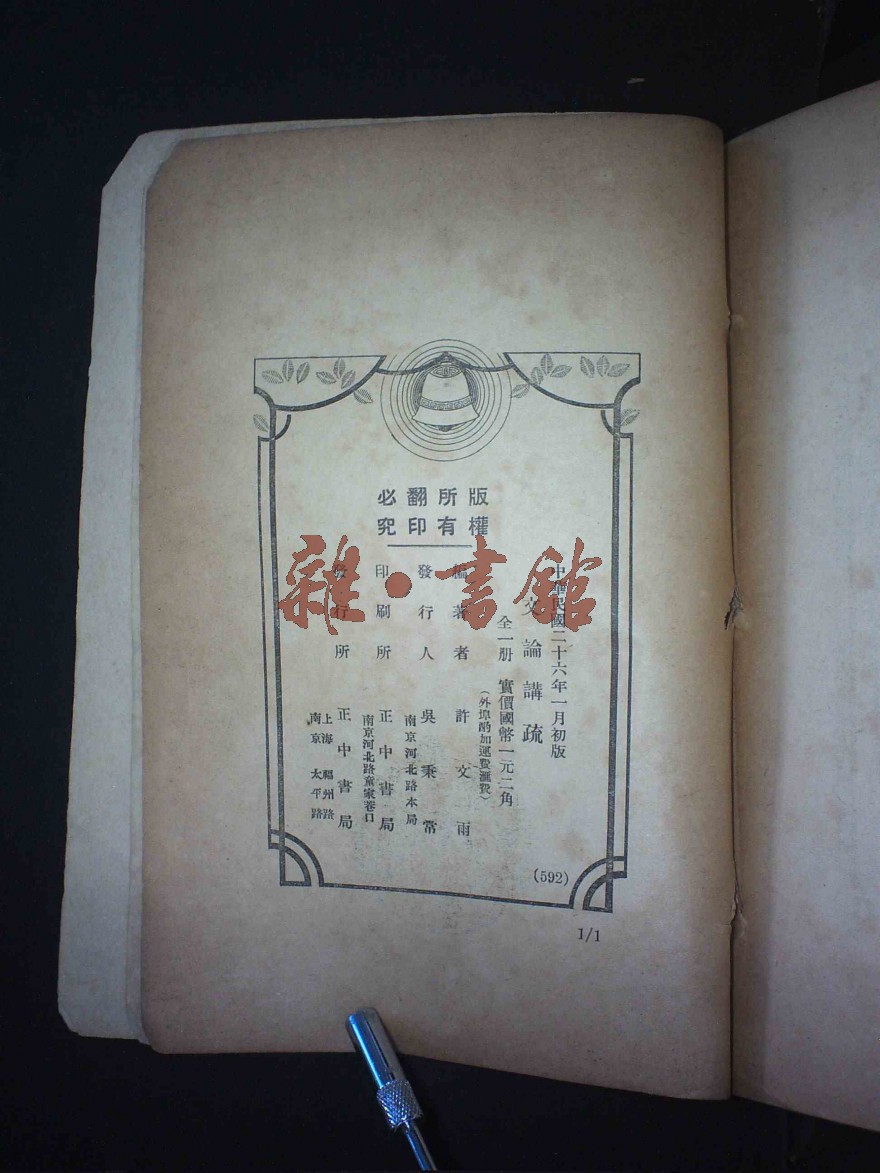 版權所有
翻印必究
中華民國二十六年一月初版
文論講疏
全一册 實價國幣一元二角
(外埠酌加運費滙費)
編著者 許文雨
發行人 吳秉常
南京河北路本局
印刷所 正中書局
南京河北路童家巷口
發行所 正中書局
上海福州路
南京太平路
(592)
1/1
雜·書館